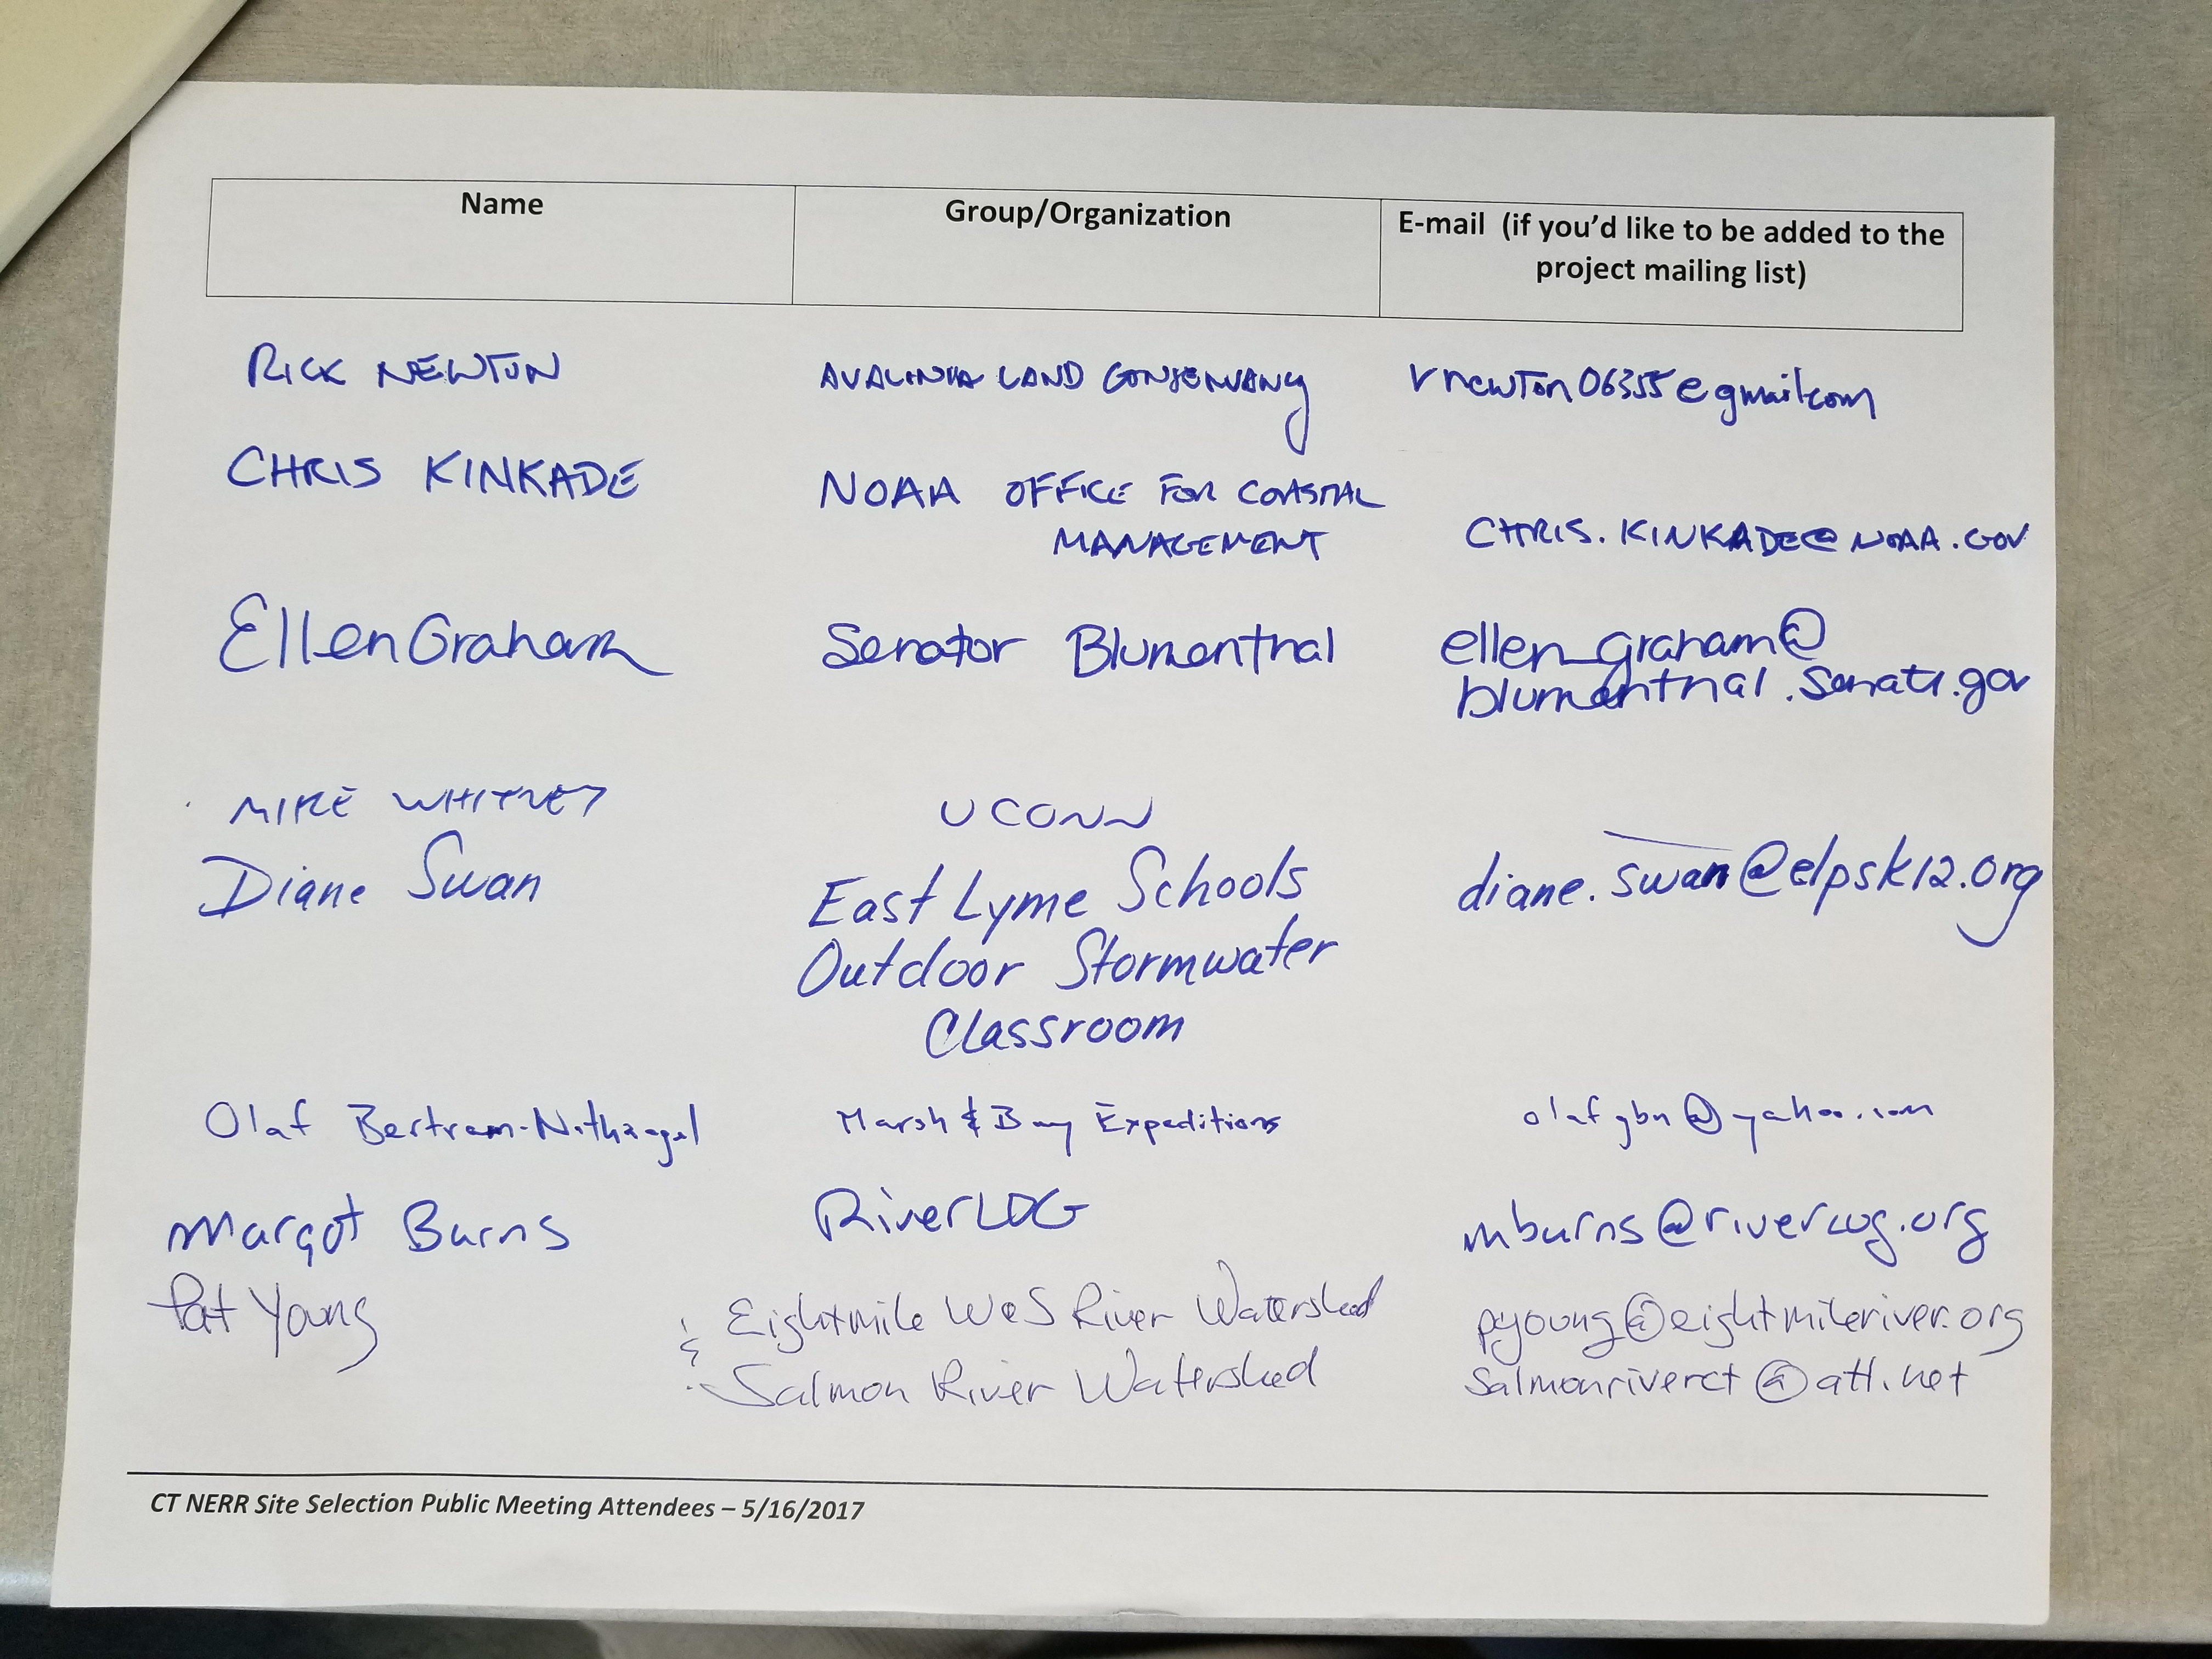 Name Group/Organization E-mail (if you'd like to be added to the
project mailing list)
RICK NEWTON AVALONIA LAND CONSERVANCY rnewton06355@gmail.com
CHRIS KINKADE NOAA OFFICE FOR COASTAL
MANAGEMENT CHRIS.KINKADE@NOAA.GOV
Ellen Graham Senator Blumenthal ellen_graham@
blumenthal.senate.gov
MIKE WHITNEY UCONN
Diane Swan East Lyme Schools diane.swan@elpsk12.org
Outdoor Stormwater
Classroom
Olaf Bertram-Nothnagel Marsh & Bay Expeditions olafgbn@yahoo.com
Margot Burns RiverCOG mburns@rivercog.org
Pat Young Eightmile W&S River Watershed pyoung@eightmileriver.org
& Salmon River Watershed salmonriverct@att.net
CT NERR Site Selection Public Meeting Attendees – 5/16/2017